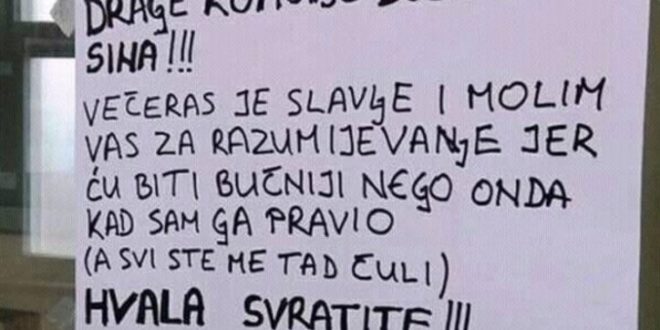 DRAGE
SINA!!!
VEČERAS JE SLAVJE I MOLIM
VAS ZA RAZUMIJEVANJE JER
ĆU BITI BUČNIJI NEGO ONDA
KAD SAM GA PRAVIO
(A SVI STE ME TAD ČULI)
HVALA SVRATITE!!!